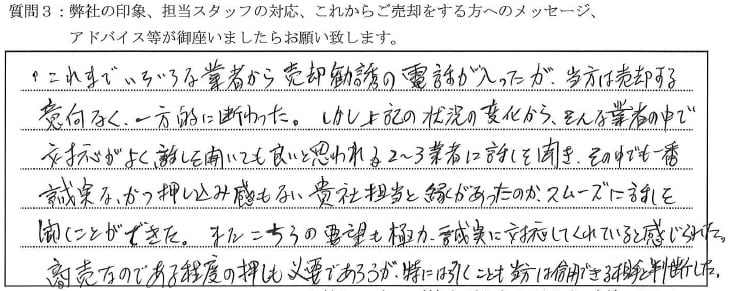 質問３：弊社の印象、担当スタッフの対応、これからご売却をする方へのメッセージ、
アドバイス等が御座いましたらお願い致します。
・これまでいろいろな業者から売却勧誘の電話が入ったが、当方は売却する
意向なく、一方的に断わった。しかし上記の状況の変化から、そんな業者の中で
対応がよく話しを聞いても良いと思われる2～3業者に話しを聞き、その中でも一番
誠実な、かつ押し込み感もない貴社担当と縁があったのか、スムーズに話しを
聞くことができた。またこちらの要望も極力、誠実に対応してくれていると感じられた。
商売なのである程度の押しも必要であろうが、時には引くことも当方は信用できる相手と判断した。